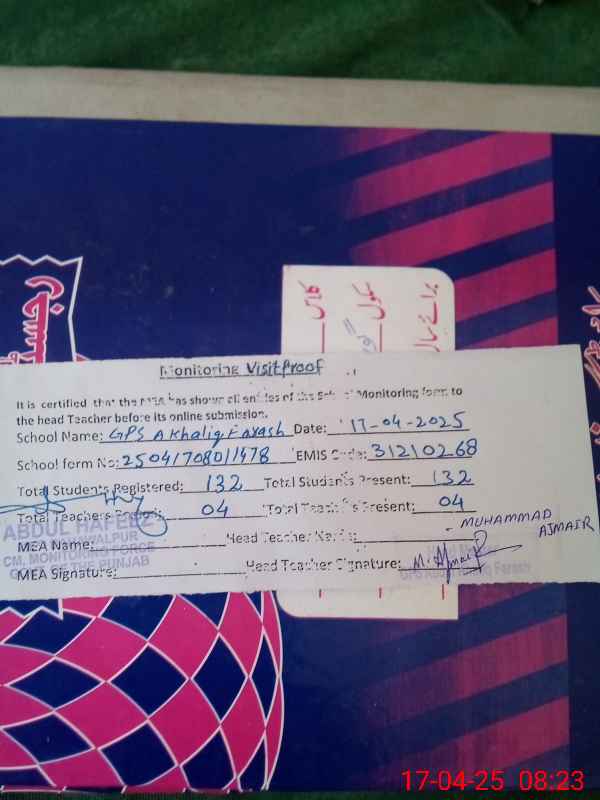 رجسٹر
کلاس
سکول
برائے سال
Monitoring Visit Proof
It is certified that the MEA has shown all entries of the School Monitoring form to
the head Teacher before its online submission.
School Name: GPS A Khaliq Farash Date: 17-04-2025
School form No: 25041708011478 EMIS Code: 31210268
Total Students Registered: 132 Total Students Present: 132
Total Teachers Posted: 04 Total Teachers Present: 04
MEA Name: Head Teacher Name: MUHAMMAD AJMAIR
MEA Signature: Head Teacher Signature: M. Ajmair
ABDUL HAFEEZ
BAHAWALPUR
CM. MONITORING FORCE
OF THE PUNJAB
Farash
17-04-25 08:23